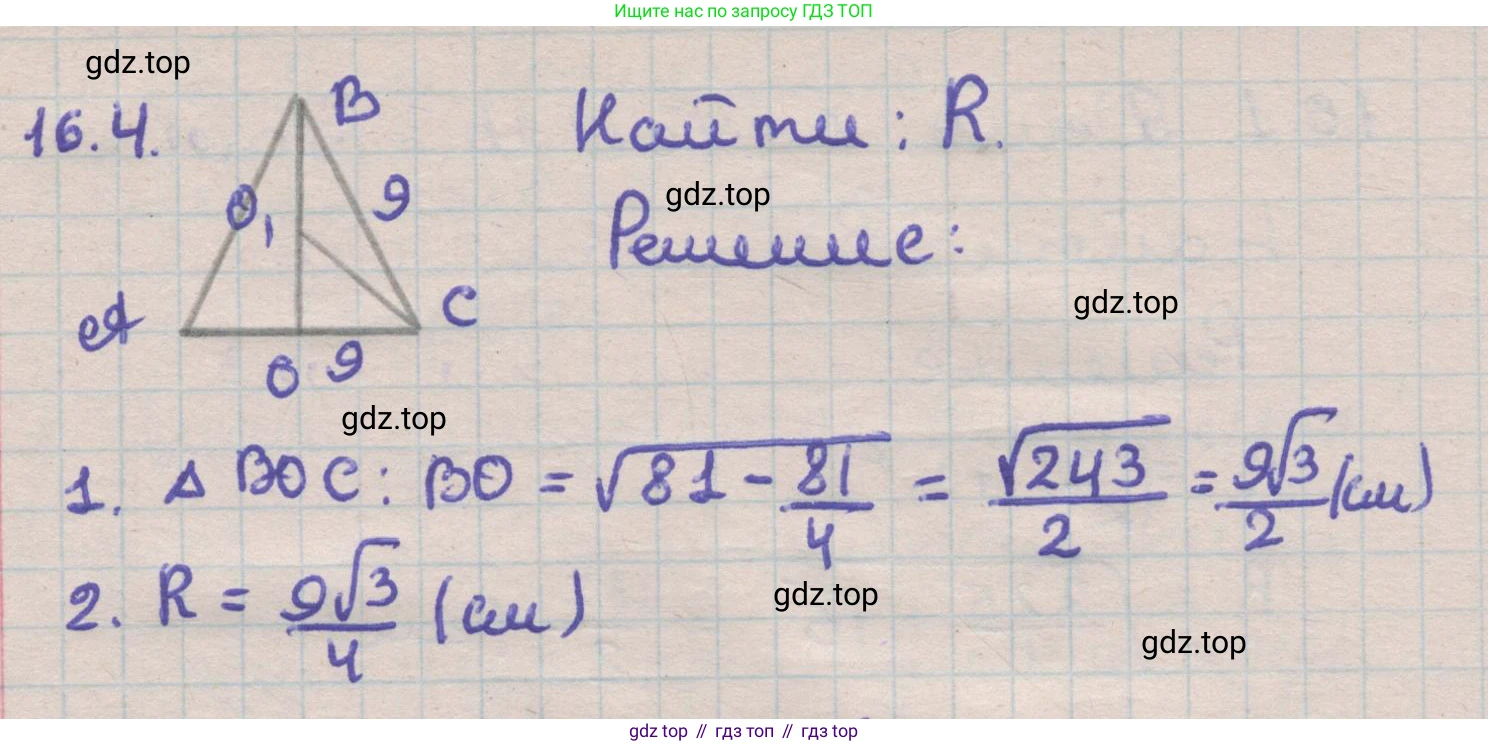 Ищите нас по запросу ГДЗ ТОП
gdz.top
16.4.
B
Найти: R.
O₁
9
gdz.top
Решение:
A
C
gdz.top
O 9
gdz.top
1. △ BOC: BO = √(81 - 81/4) = √243/2 = 9√3/2 (см)
2. R = 9√3/4 (см)
gdz.top
gdz.top
gdz top // гдз топ // гдз top